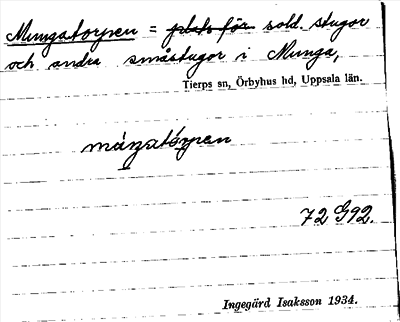 Mungatorpen = plats för sold. stugor
och andra småstugor i Munga,
Tierps sn, Örbyhus hd, Uppsala län.
72 G92.
Ingegärd Isaksson 1934.